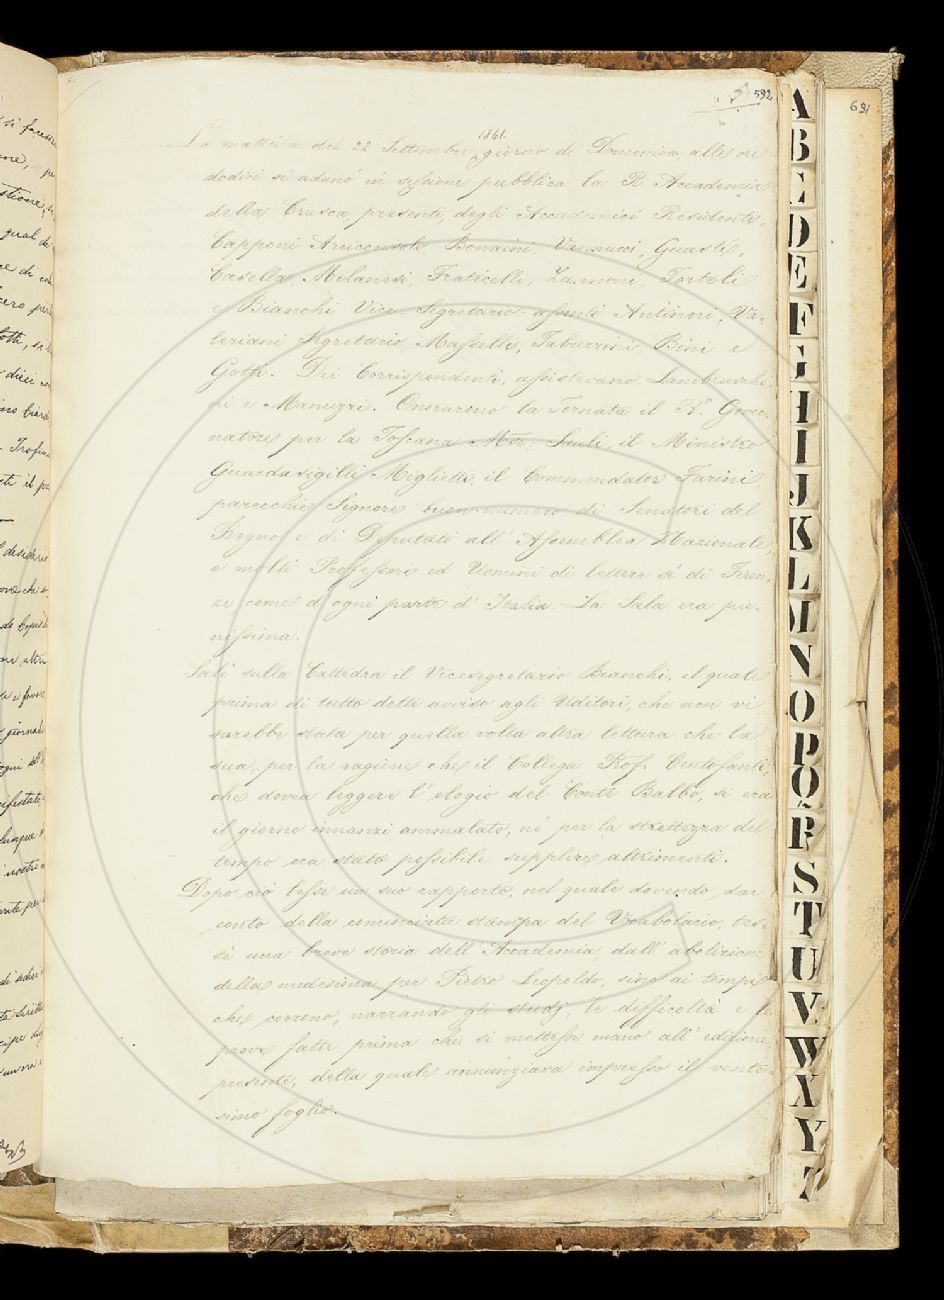 592
691
1861.
La mattina del 22 Settembre, giorno di Domenica, alle ore
dodici si adunò in sessione pubblica la R. Accademia
della Crusca, presenti, degli Accademici Residenti,
Capponi Arciconsolo, Bonaini, Vannucci, Guasti,
Casella, Milanesi, Fraticelli, Zannoni, Tortoli
e Bianchi Vice-Segretario: assenti Antinori, Va-
leriani Segretario, Masselli, Tabarrini, Bini e
Gotti. Dei Corrispondenti, assistevano Lambruschi-
ni e Manuzzi. Onorarono la Tornata il R.º Gover-
natore per la Toscana March. Sauli, il Ministro
Guardasigilli Miglietti, il Commendator Farini,
parecchie Signore buon numero di Senatori del
Regno e di Deputati all'Assemblea Nazionale,
e molti Professori ed Uomini di lettere sì di Firen-
ze come d'ogni parte d'Italia. La Sala era pie-
nissima.
Salì sulla Cattedra il Vicesegretario Bianchi, il quale
prima di tutto dette avviso agli Uditori, che non vi
sarebbe stata per quella volta altra lettura che la
sua, per la ragione che il Collega Prof. Centofanti,
che dovea leggere l'elogio del Conte Balbo, si era
il giorno innanzi ammalato, nè per la strettezza del
tempo era stato possibile supplire altrimenti.
Dopo ciò lesse un suo rapporto, nel quale dovendo dar
conto della cominciata stampa del Vocabolario, tes-
sè una breve storia dell'Accademia, dall'abolizione
della medesima per Pietro Leopoldo, sino ai tempi
che corrono, narrando gli studj, le difficoltà e le
prove fatte prima che si mettesse mano all'edizione
presente, della quale annunziava impresso il vente-
simo foglio.
A
B
C
D
E
F
G
H
I
J
K
L
M
N
O
P
Q
R
S
T
U
V
W
X
Y
Z